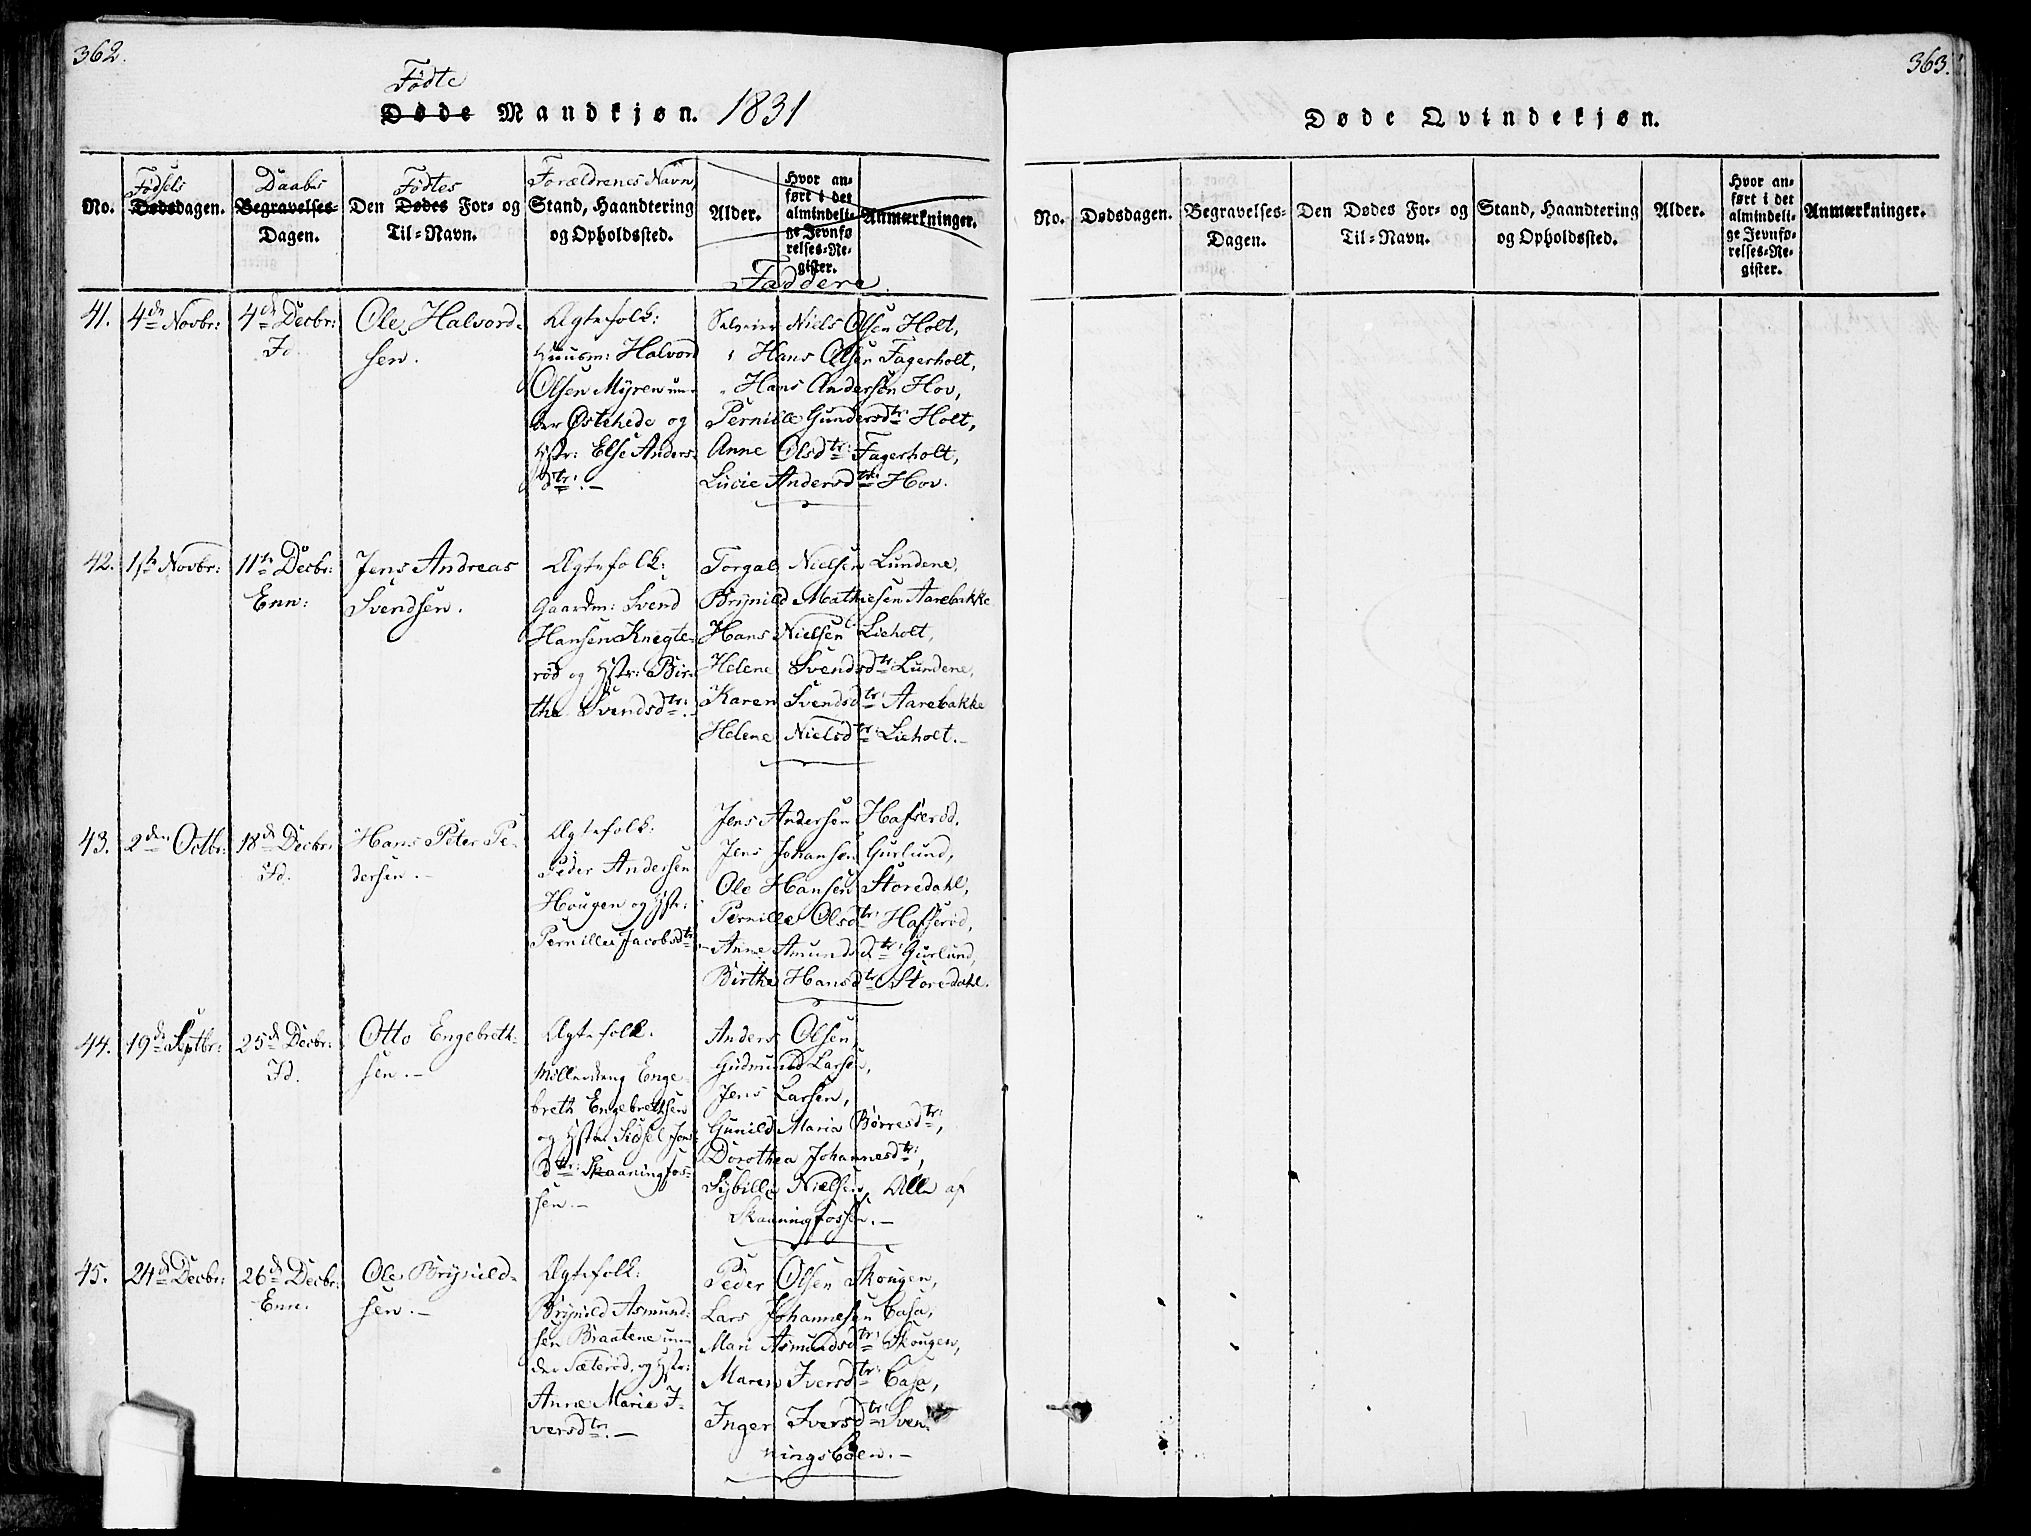 362.
Fødte
Døde Mandkjøn. 1831
No.
Fødsels
Dødsdagen.
Daabs
Begravelses-
Dagen.
Fødtes
Den Dødes For- og
Til-Navn.
Forældrenes Navn,
Stand, Haandtering
og Opholdssted.
Alder.
Hvor an-
ført i det
almindeli-
ge Jevnfø-
relses-Re-
gister.
Anmærkninger.
Faddere.
41.
4de Novbr:
4de Decbr:
Id.
Ole Halvord-
sen.
Ægtefolk:
Huusm: Halvor
Olsen Myren un-
der Østehede og
Hstr: Else Anders-
dtr: -
Selveier Niels Olsen Holt,
" Hans Olsen Fagerholt,
" Hans Andersen Hov,
Pernille Gundersdtr: Holt,
Anne Olsdtr: Fagerholt,
Lucie Andersdtr: Hov.
42.
1ste Novbr:
11te Decbr:
Enn:
Jens Andreas
Svendsen.
Ægtefolk:
Gaardm: Svend
Hansen Knegte-
rød og Hstr: Bir-
the Svendsdtr: -
Torgal Nielsen Lundene,
Brynild Mathiesen Aarebakke
Hans Nielsen Lieholt,
Helene Svendsdtr: Lundene,
Karen Svendsdtr: Aarebakke
Helene Nielsdtr: Lieholt. -
43.
2den Octbr:
18de Decbr:
Id.
Hans Peter Pe-
dersen. -
Ægtefolk:
Peder Andersen
Hougen og Hstr:
Pernille Jacobsdtr
Jens Andersen Hafserød,
Jens Johansen Gurlund,
Ole Hansen Storedahl,
Pernille Olsdtr: Hafserød,
Anne Amundsdtr: Gurlund,
Birthe Hansdtr: Storedahl.
44.
19de Septbr:
25de Decbr:
Id.
Otto Engebreth-
sen. -
Ægtefolk.
Mølledreng Enge-
breth Engebrethsen
og Hstr: Sidsel Jens-
dtr: Skaaningfos-
sen. -
Anders Olsen,
Gudmund Larsen,
Jens Larsen,
Gunild Maria Børresdtr:,
Dorothea Johannesdtr:,
Sybille Nielsen, Alle af
Skaaningfossen. -
45.
24de Decbr:
26de Decbr:
Enn.
Ole Brynild-
sen. -
Ægtefolk:
Brynild Asmund-
sen Braatene un-
der Sæterød, og Hstr:
Anne Marie I-
versdtr: -
Peder Olsen Skougen,
Lars Johannesen Casa,
Mari Asmundsdtr: Skougen,
Maren Iversdtr: Casa,
Inger Iversdtr: Sven-
ningsbøen. -
363.
Døde Qvindekjøn.
No.
Dødsdagen.
Begravelses-
Dagen.
Den Dødes For- og
Til-Navn.
Stand, Haandtering
og Opholdssted.
Alder.
Hvor an-
ført i det
almindeli-
ge Jevnfø-
relses-Re-
gister.
Anmærkninger.